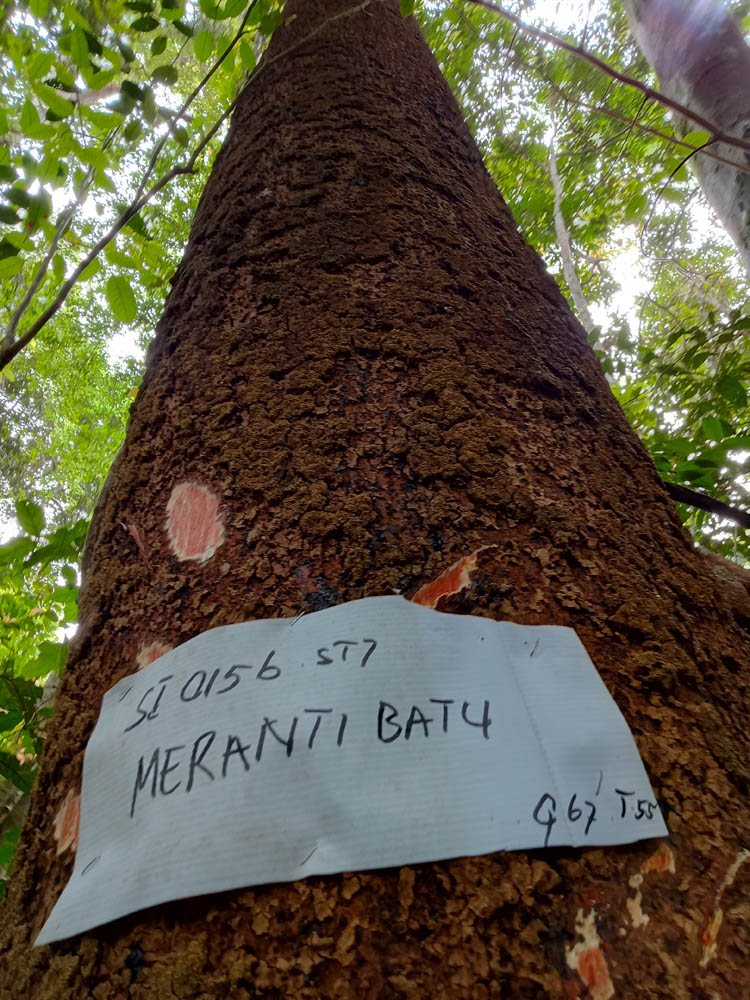 SI 0156 ST7
MERANTI BATU
Q 67 T.55